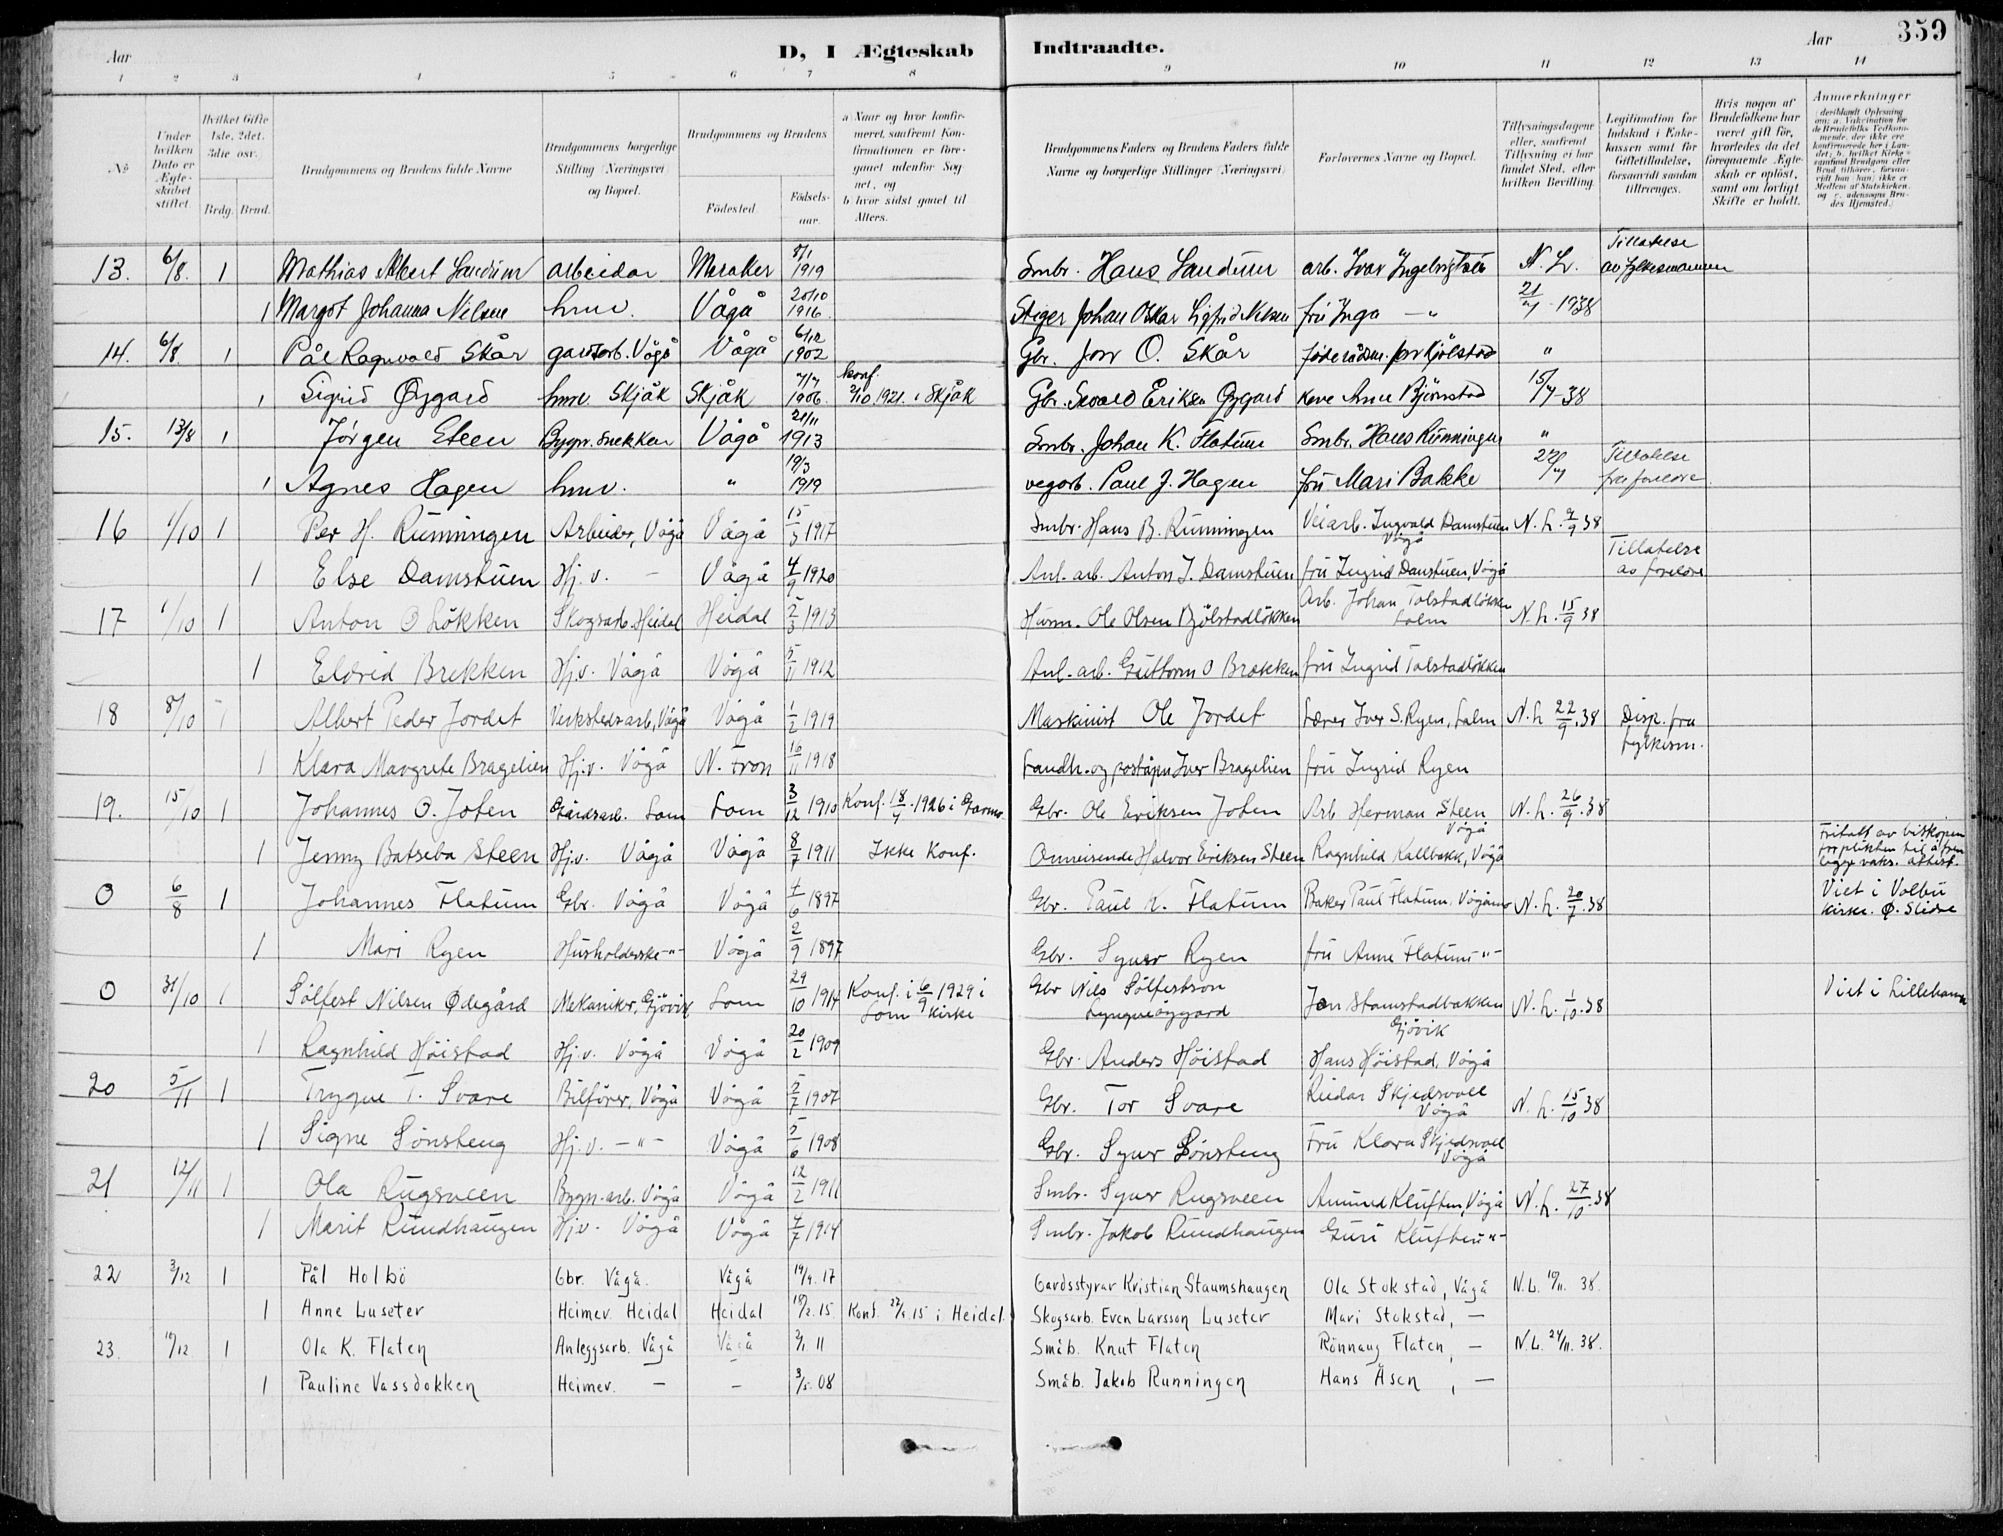 359
Aar
D, I Ægteskab Indtraadte.
Aar
1 2 3 4 5 6 7 8 9 10 11 12 13 14
No
Under hvilken Dato er Ægteskabet stiftet.
Hvilket Gifte 1ste, 2det, 3die osv.
Brdg. Brud.
Brudgommens og Brudens fulde Navne
Brudgommens borgerlige Stilling (Næringsvei) og Bopæl.
Brudgommens og Brudens
Fødested.
Fødselsaar.
a) Naar og hvor konfirmeret, saafremt Konfirmationen er foregaaet udenfor Sognet, og
b) hvor sidst gaaet til Alters.
Brudgommens Faders og Brudens Faders fulde Navne og borgerlige Stillinger (Næringsvei)
Forlovernes Navne og Bopæl.
Tillysningsdagene eller, saafremt Tillysning ei har fundet Sted, efter hvilken Bevilling.
Legitimation for Indskud i Enkekassen samt for Giftetilladelse, forsaavidt saadan tiltrænges.
Hvis nogen af Brudefolkene har været gift før, hvorledes da det foregaaende Ægteskab er opløst, samt om lovligt Skifte er holdt.
Anmærkninger
13. 6/8. 1 Mathias Albert Sandum arbeidar Meraker 8/1 1919 Smbr. Hans Sandum arb. Ivar N. L. Tillatelse av fylkesmannen
1 Margot Johanna Nilsen hmv. Vågå 20/10 1916 Stiger Johan Oskar Sigfrid Nilsen fru Inga — " 21/7 - 1938
14. 6/8. 1 Pål Ragnvald Skår gardsarb. Vågå Vågå 6/12 1902 Gbr. Jon O. Skår føderådsm. Jon Kjølstad "
1 Sigrid Øygard hmv. Skjåk Skjåk 7/7 1906 konf. 2/10 1921 i Skjåk Gbr. Sevald Eriksen Øygard Anne Bjørnstad 15/7-38
15. 13/8 1 Jørgen Steen Bygn. snekker Vågå 21/11 1913 Smbr. Johan K. Flatum Smbr. Hans Rünningen "
1 Agnes Hagen hmv. " 19/3 1919 vegarb. Paul J. Hagen frü Mari Bakke 22/7 Tillatelse fra foreldre
16 1/10 1 Per H. Rünningen Arbeider, Vågå Vågå 15/3 1917 Smbr. Hans B. Rünningen Veiarb. Ingvald Damstuen Vågå N. L. 9/9 38
1 Else Damstüen Hj. v. — Vågå 4/9 1920 Anl. arb. Anton J. Damstüen frü Ingrid Damstuen, Vågå Tillatelse av foreldre
17 1/10 1 Anton O Løkken Skogsarb. Heidal Heidal 5/3 1913 Husm. Ole Olsen Bjølstadløkken Arb. Johan Tolstadløkken Lalm N. L. 15/9 38
1 Eldrid Brekken Hj.v. Vågå Vågå 5/11 1912 Anl. arb. Guttorm O Brekken frü Ingrid Tolstadløkken
18 8/10 1 Albert Peder Jordet Verkstedsarb, Vågå Vågå 1/2 1919 Maskinist Ole Jordet Lærer Iver S. Ryen, Lalm N. L 22/9. 38 Disp. fra fylkesm.
1 Klara Margrete Bragelien Hj.v. Vågå N. Fron 16/11 1918 Landh. og poståpn Iver Bragelien frü Ingrid Ryen
19. 15/10 1 Johannes O. Joten Gårdsarb. Lom Lom 3/12 1910 Konf. 18/7 1926 i Garmo Gbr. Ole Eriksen Joten Arb Herman Steen Vågå N. L. 26/9. 38
1 Jenny Batseba Steen Hj.v. Vågå Vågå 8/7 1911 Ikke Konf. Omreisende Halvor Eriksen Steen Ragnhild Kallbakk, Vågå Fritatt av biskopen for plikten til å fremlegge vaks. attest.
0 6/8 1 Johannes Flatum Gbr. Vågå Vågå 4/6 1897 Gbr. Paul K. Flatum Baker Paul Flatum, Vågåmo N. L. 20/7. 38 Viet i Volbu kirke. Ø. Slidre
1 Mari Ryen Husholderske -"- Vågå 2/9 1897 Gbr. Syver Ryen frü Anne Flatum -"-
0 31/10 1 Sølfest Nilsen Ødegård Mekaniker, Gjøvik Lom 29/10 1914 Konf. i 6/9 1929 i Lom kirke Gbr Nils Sølfestson Jon Stamstadbakken Gjøvik N. L. 1/10. 38 Viet i Lillehamm
1 Ragnhild Høistad Hj.v. Vågå Vågå 20/2 1909 Gbr. Anders Høistad Hans Høistad, Vågå
20 5/11 1 Trygve T. Svare Bilfører, Vågå Vågå 5/7 1907 Gbr. Tor Svare Reidar Skjedsvoll Vågå N. L. 15/10 38
1 Signe Sønsteng Hj.v. -"- Vågå 5/6 1908 Gbr. Syver Sønsteng Frü Klara Skjedsvoll Vågå
21 12/11 1 Ola Rugsveen Bygn. arb. Vågå Vågå 12/2 1911 Smbr. Syver Rugsveen Amund Kluften, Vågå N. L. 27/10. 38
1 Marit Rundhaugen Hj.v. Vågå Vågå 4/7 1914 Smbr. Jakob Rundhaugen Guri Kluften -"-
22 3/12 1 Pål Holbö Gbr. Vågå. Vågå 19/9. 17 Gardsstyrar Kristian Staumshaugen Ola Stokstad, Vågå N.L. 19/11. 38.
1 Anne Luseter Heimev. Heidal Heidal 18/2. 15 Konf. 15 i Heidal. Skogsarb. Even Larsson Luseter Mari Stokstad, —
23. 10/12 1 Ola K. Flaten Anleggsarb. Vågå Vågå 2/1 11 Småb. Knut Flaten Rönnaug Flaten, — N.L. 24/11. 38.
1 Pauline Vassdokken Heimev. — — 3/5. 08 Småb. Jakob Runningen Hans Åsen, —